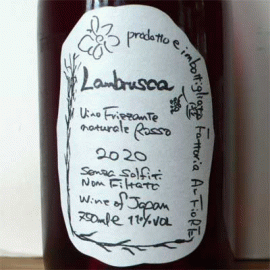 prodotto e imbottigliato Fattoria Al Fiore
Lambrusca
Vino Frizzante
naturale Rosso
2020
Senza Solfiti
Non Filtrato
Wine of Japan
750ml 11%VOL